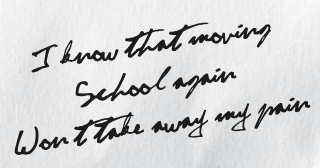 I know that moving
School again
Won't take away my pain